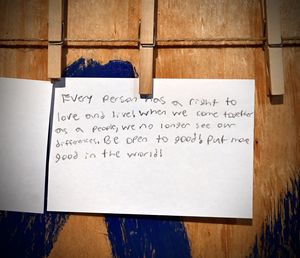 Every person has a right to
love and live! When we come together
as a people, we no longer see our
differences. Be open to good! Put more
good in the world!